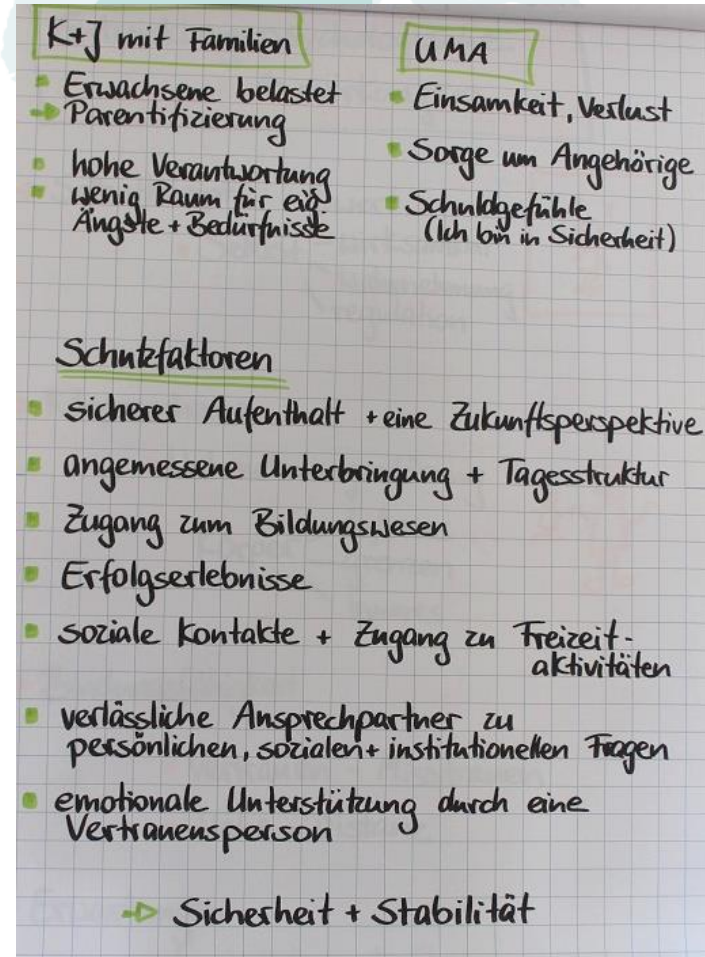 K+J mit Familien
Erwachsene belastet
Parentifizierung
hohe Verantwortung
wenig Raum für eig.
Ängste + Bedürfnisse
UMA
Einsamkeit, Verlust
Sorge um Angehörige
Schuldgefühle
(Ich bin in Sicherheit)
Schutzfaktoren
sicherer Aufenthalt + eine Zukunftsperspektive
angemessene Unterbringung + Tagesstruktur
Zugang zum Bildungswesen
Erfolgserlebnisse
soziale Kontakte + Zugang zu Freizeit-
aktivitäten
verlässliche Ansprechpartner zu
persönlichen, sozialen + institutionellen Fragen
emotionale Unterstützung durch eine
Vertrauensperson
Sicherheit + Stabilität